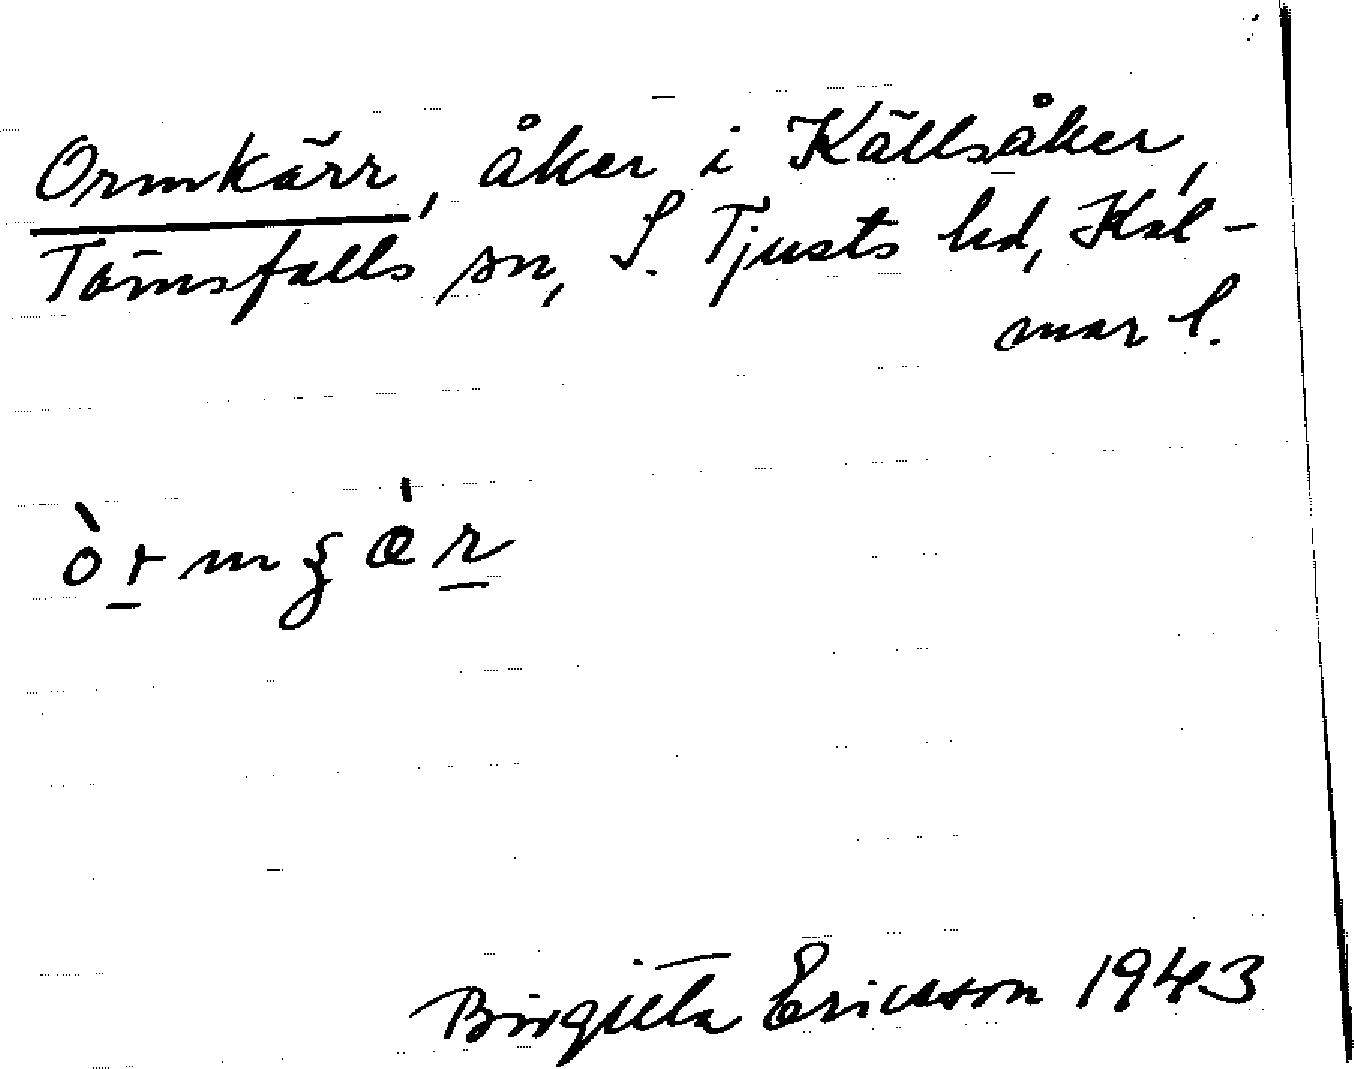 Ormkärr, åker i Källsåker,
Törnsfalls sn, S. Tjusts hd, Kal-
mar l.
Birgitta Ericsson 1943